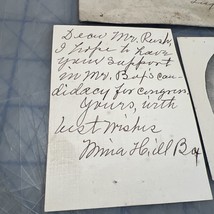 Dear Mr. Rusk,
I hope to have
your support
in Mr. Bax's can-
didacy for congress.
Yours, with
best wishes
Mina Hill